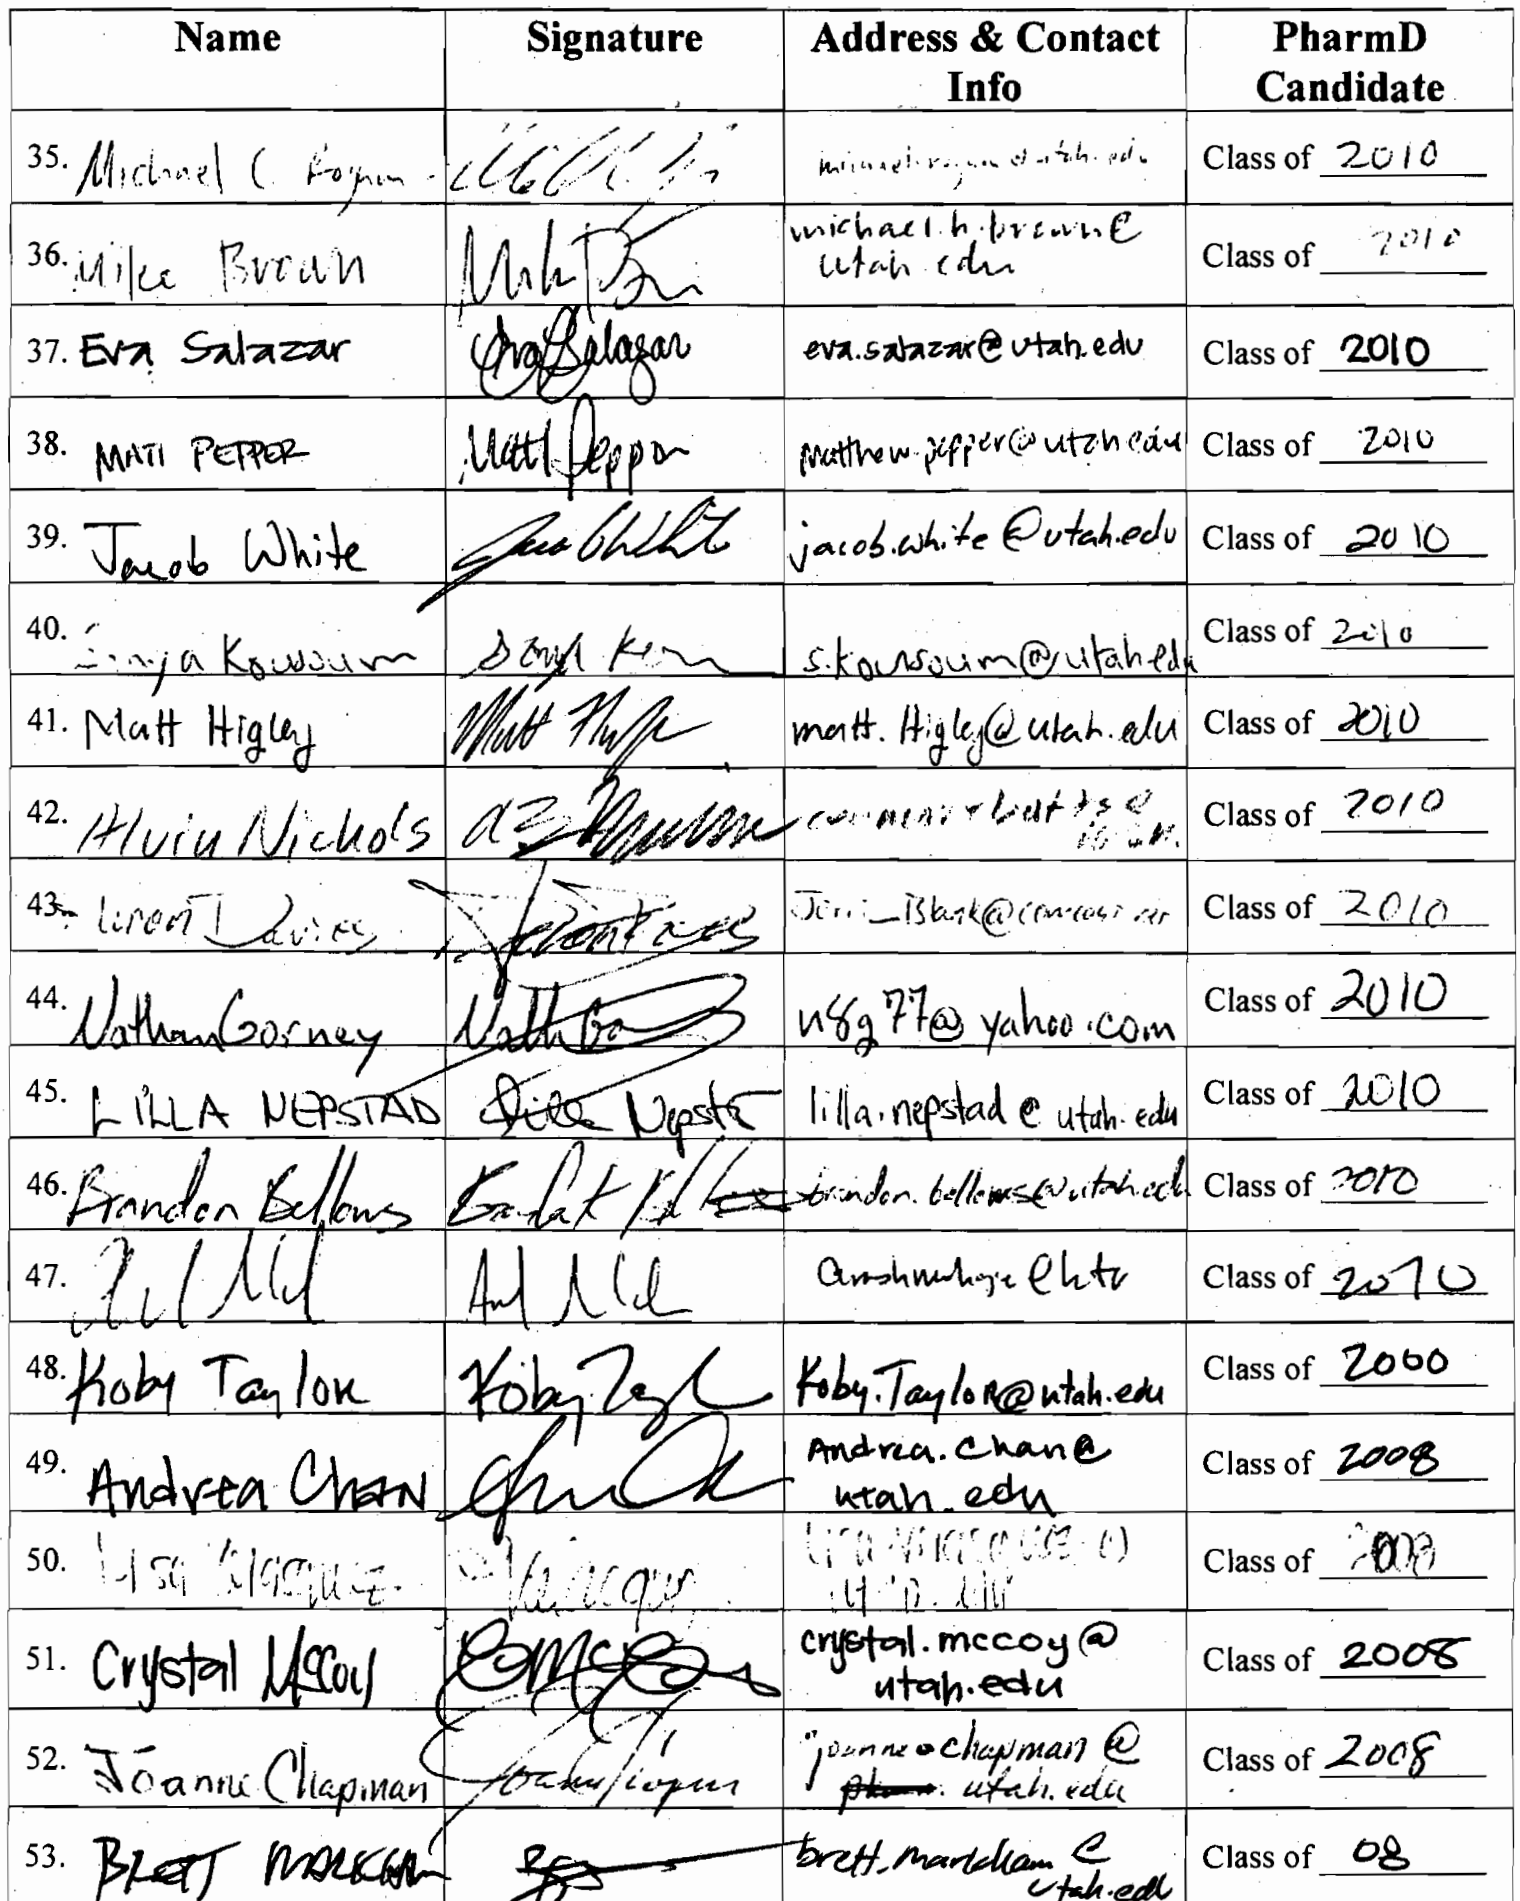 Name Signature Address & Contact Info PharmD Candidate
35. Michael C. Class of 2010
36. Mike Brown michael.h.brown@
utah.edu Class of 2010
37. Eva Salazar Eva Salazar eva.salazar@utah.edu Class of 2010
38. MATT PEPPER Matt Pepper matthew.pepper@utah.edu Class of 2010
39. Jacob White jacob.white@utah.edu Class of 2010
40. Koussoum s.koussoum@utah.edu Class of 2010
41. Matt Higley Matt matt.Higley@utah.edu Class of 2010
42. Alvin Nichols Class of 2010
43. Davies Class of 2010
44. Nathan Gorney n8g77@yahoo.com Class of 2010
45. LILLA NEPSTAD Lilla Nepstad lilla.nepstad@utah.edu Class of 2010
46. Brandon Bellows brandon.bellows@utah.edu Class of 2010
47. Class of 2010
48. Koby Taylor Koby Koby.Taylor@utah.edu Class of 2000
49. Andrea Chan Andrea.chan@
utah.edu Class of 2008
50. Lisa Class of
51. Crystal McCoy crystal.mccoy@
utah.edu Class of 2008
52. Joanne Chapman joanne.chapman@
utah.edu Class of 2008
53. Brett Markham brett.markham@
utah.edu Class of 08